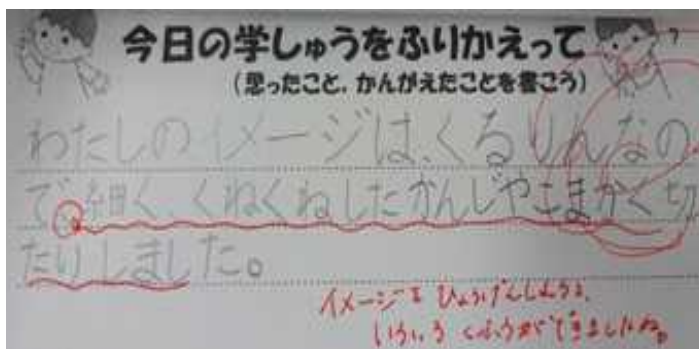 今日の学しゅうをふりかえって
(思ったこと、かんがえたことを書こう)
わたしのイメージは、くるりんなの
で、細く、くねくねしたかんじやこまかく切っ
たりしました。
イメージを ひょうげんしようと、
いろいろ くふうができましたね。